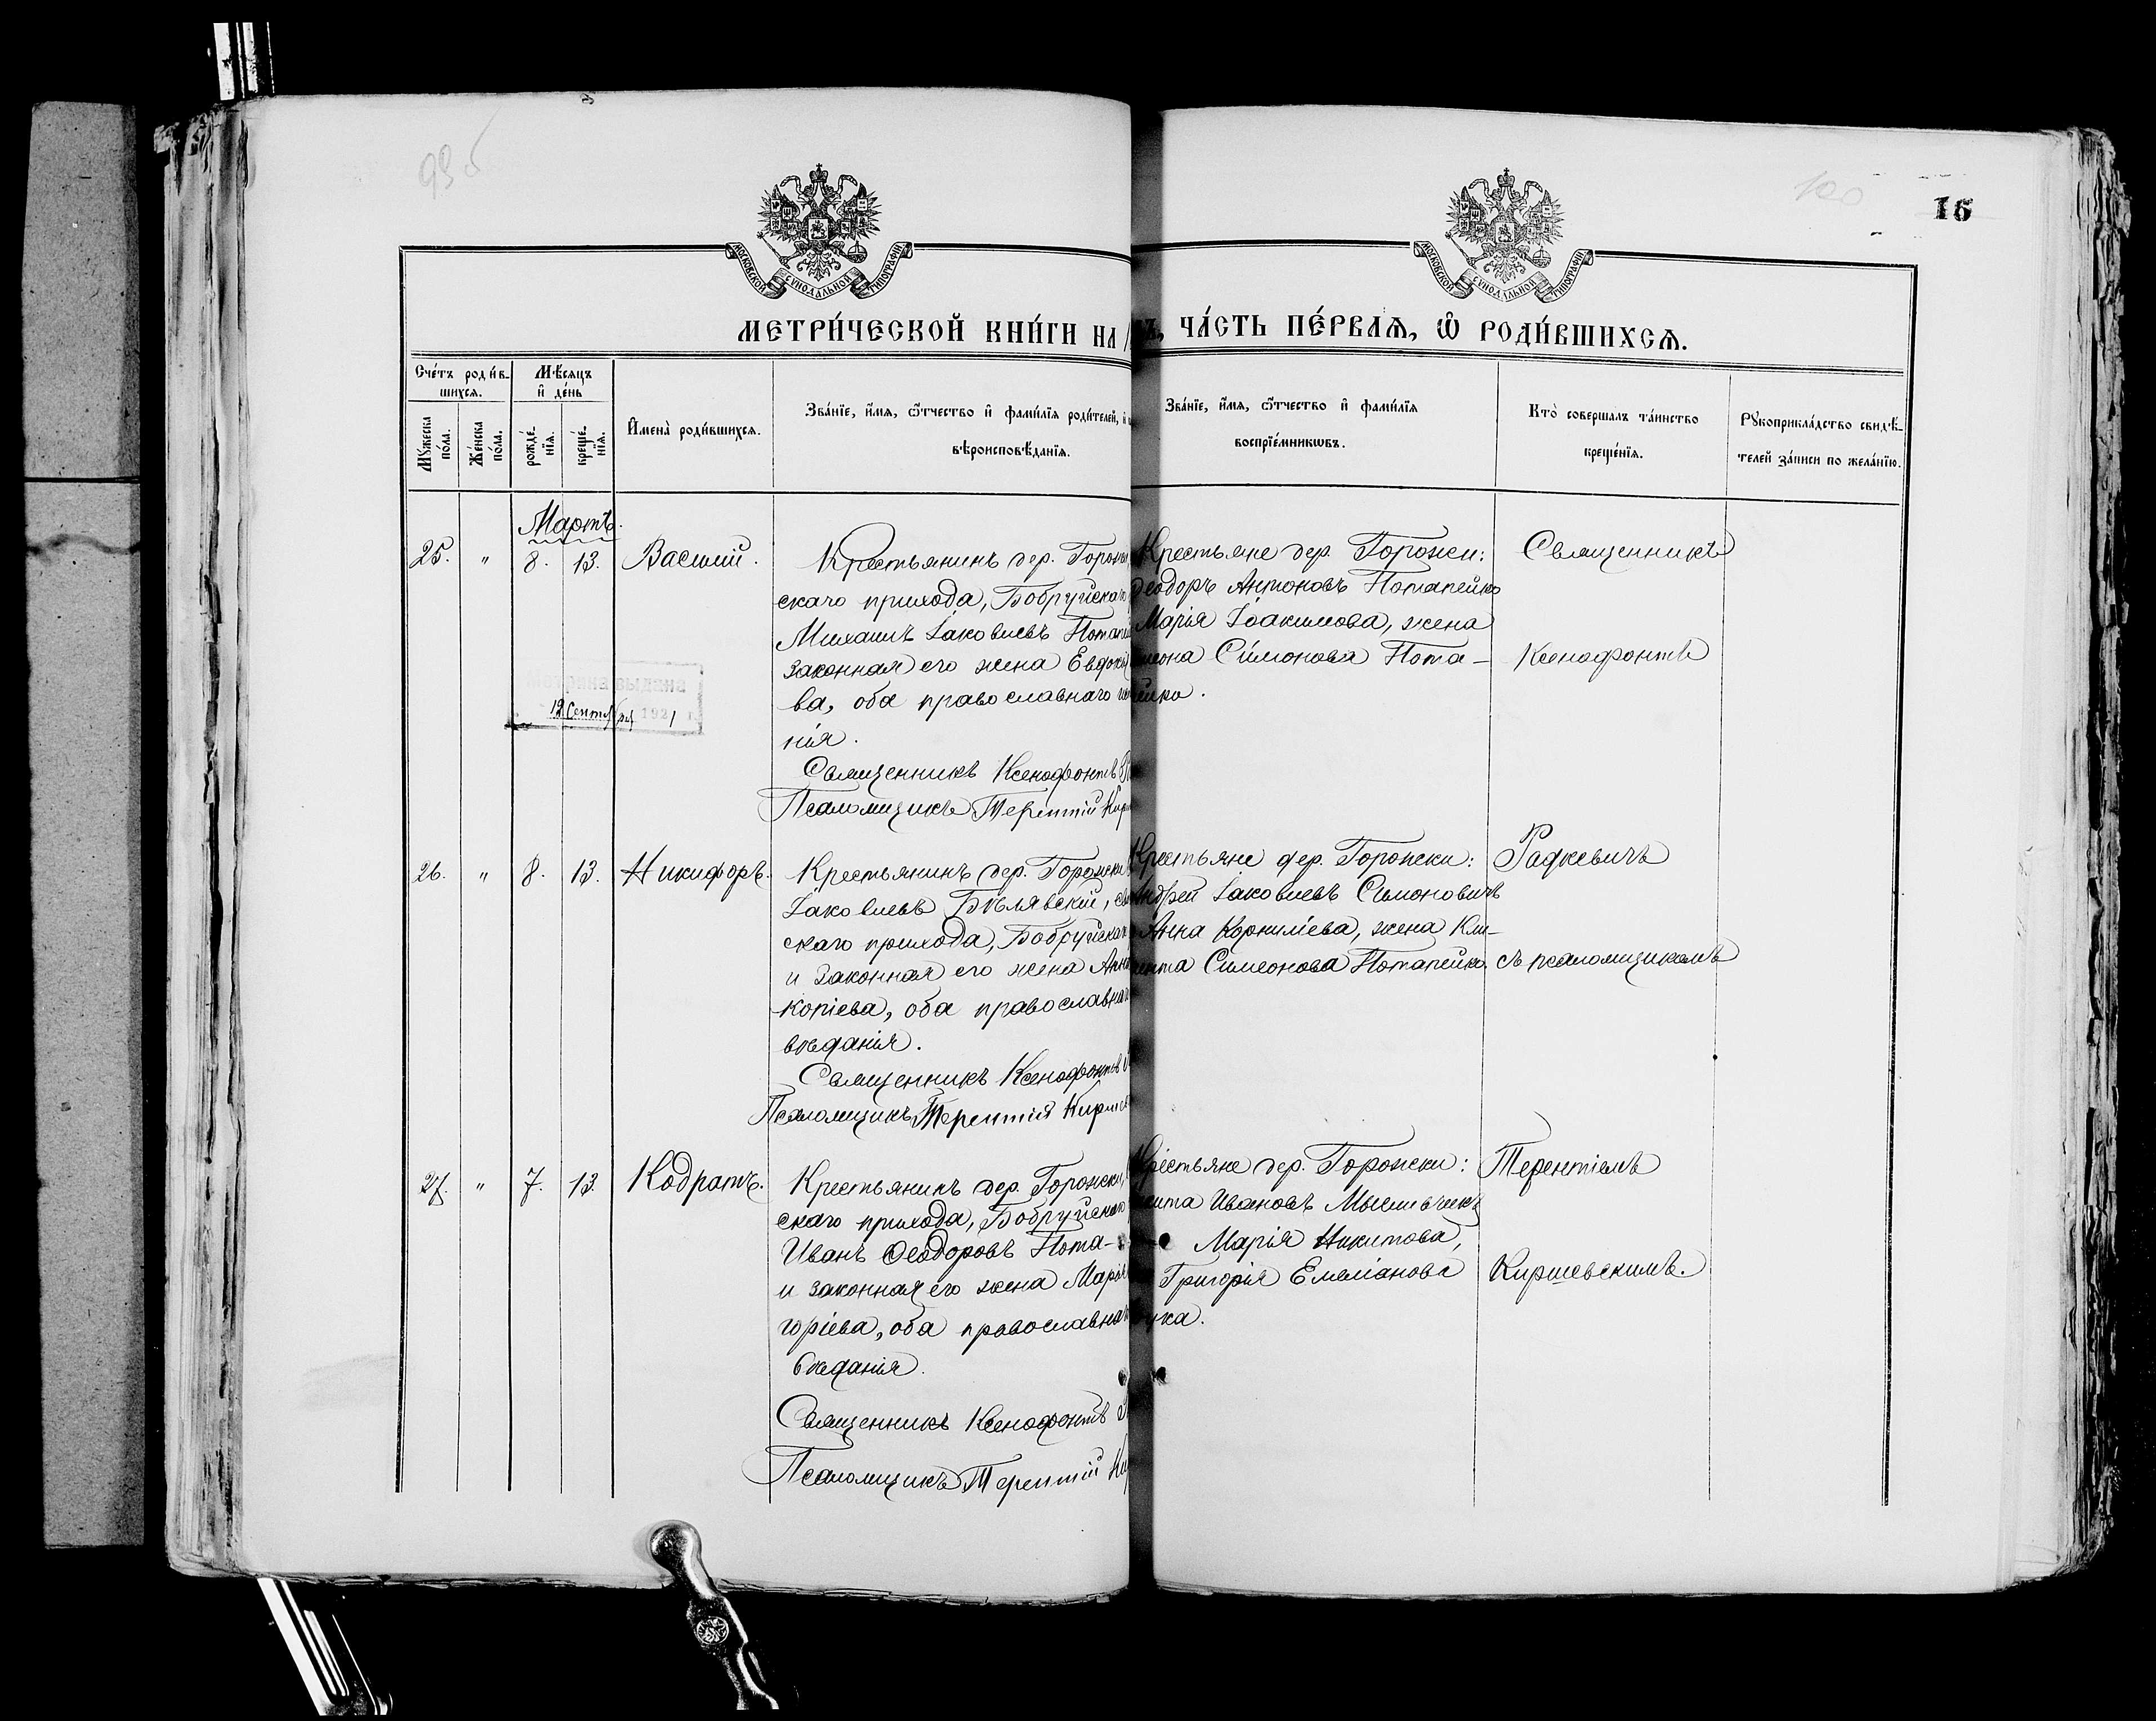 93 об
100
16
МОСКОВСКОЙ СѴНОДАЛЬНОЙ ТИПОГРАФІИ
МОСКОВСКОЙ СѴНОДАЛЬНОЙ ТИПОГРАФІИ
МЕТРИ́ЧЕСКОЙ КНИ́ГИ НА
ЧА́СТЬ ПЕ́РВАѦ, Ѽ РОДИ́ВШИХСѦ.
Сче́тъ роди́в-
шихсѧ.
Мужеска по́ла.
Же́нска по́ла.
Мѣ́сяцъ
и҆ де́нь
рожде́-нїѧ.
креще́-нїѧ.
И҆мена̀ роди́вшихсѧ.
Зва́нїе, и҆́мѧ, ѻ҆́тчество и҆ фами́лїѧ роди́телей, и҆
вѣроисповѣ́данїѧ.
Зва́нїе, и҆́мѧ, ѻ҆́тчество и҆ фами́лїѧ
воспрїе́мникѡвъ.
Кто̀ соверша́лъ та́инство
креще́нїѧ.
Рукоприкла́дство свидѣ́-
телей за́писи по жела́нїю.
Мартъ.
25. " 8. 13. Василій.
Крестьянинъ дер. Горожи
скаго прихода, Бобруйскаго
Михаилъ Іаковлевъ Потапей
законная его жена Евдокі
ва, оба православнаго
нія.
Священникъ Ксенофонтъ
Псаломщикъ Терентій Кир
12 Сентября 1921 г.
Крестьяне дер. Горожи:
Ѳеодоръ Антоновъ Потапейко
Марія Іоакимова, жена
Симонова Пота-
пейко.
Священникъ
Ксенофонтъ
26. " 8. 13. Никифоръ.
Крестьянинъ дер. Горожки
Іаковлевъ Бѣлявскій,
скаго прихода, Бобруйскаго
и законная его жена Анна
копіева, оба православна
вѣданія.
Священникъ Ксенофонтъ
Псаломщикъ Терентій Кирше
Крестьяне дер. Горожки:
Андрей Іаковлевъ Симоновичъ
Анна Корниліева, жена Кли-
мента Симеонова Потапейко.
Радкевичъ
съ псаломщикомъ
27. " 7. 13. Кодратъ.
Крестьянинъ дер. Горожки,
скаго прихода, Бобруйскаго
Иванъ Ѳеодоровъ Пота-
и законная его жена Марія
горіева, оба православна
вѣданія.
Священникъ Ксенофонтъ
Псаломщикъ Терентій Ки
Крестьяне дер. Горожки:
Никита Ивановъ
Марія Никитова,
Григорія Емеліанова
ука.
Терентіемъ
Киршевскимъ.